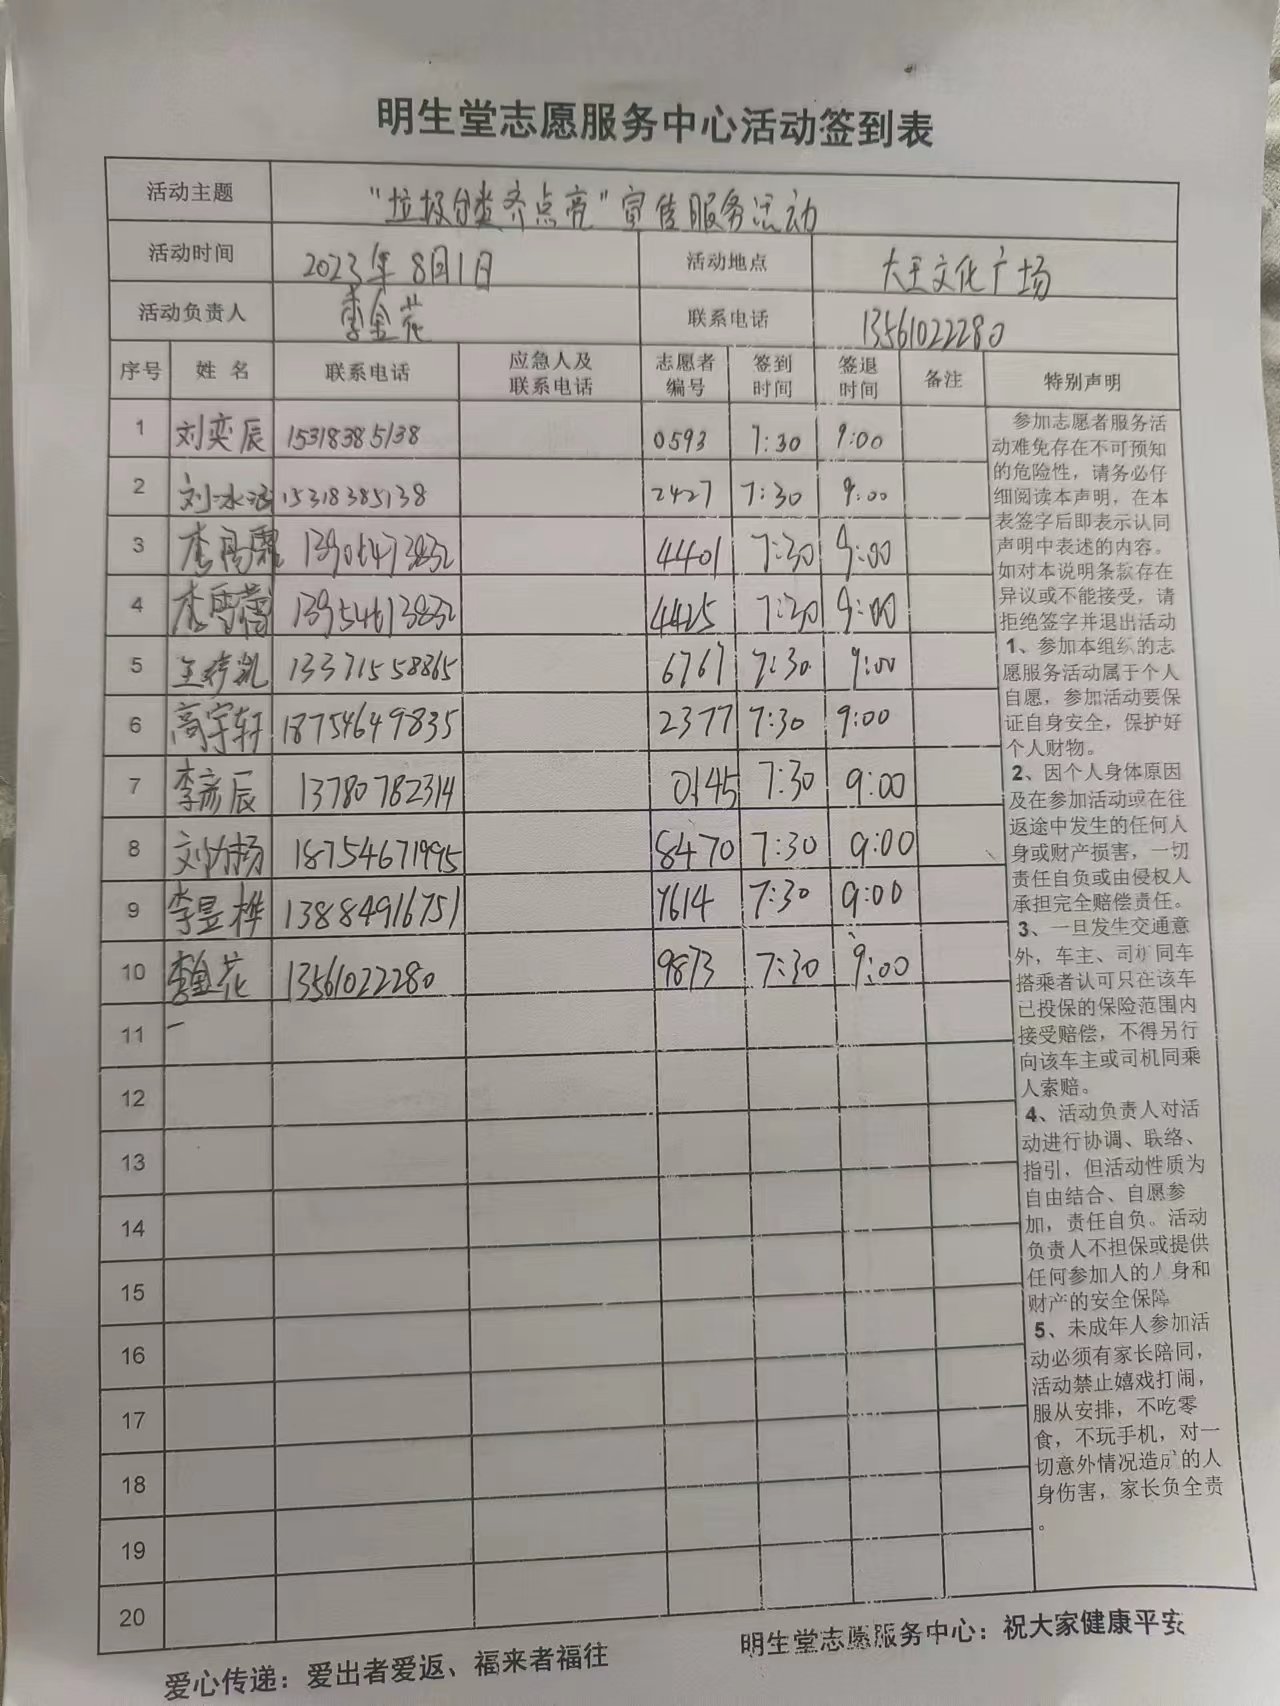 明生堂志愿服务中心活动签到表
活动主题 "垃圾分类齐点亮"宣传服务活动
活动时间 2023年8月1日 活动地点 大王文化广场
活动负责人 李金花 联系电话 13561022280
序号 姓名 联系电话 应急人及联系电话 志愿者编号 签到时间 签退时间 备注 特别声明
1 刘奕辰 15318385138 0593 7:30 9:00
2 刘冰涵 15318385138 2427 7:30 9:00
3 13906473832 4401 7:30 9:00
4 13954613832 4425 7:30 9:00
5 13371558865 6767 7:30 9:00
6 高宇轩 18754649835 2377 7:30 9:00
7 李彦辰 13780782314 0145 7:30 9:00
8 18754671995 8470 7:30 9:00
9 李昱桦 13884916751 7614 7:30 9:00
10 李金花 13561022280 9873 7:30 9:00
11
12
13
14
15
16
17
18
19
20
参加志愿者服务活
动难免存在不可预知
的危险性，请务必仔
细阅读本声明，在本
表签字后即表示认同
声明中表述的内容。
如对本说明条款存在
异议或不能接受，请
拒绝签字并退出活动
1、参加本组织的志
愿服务活动属于个人
自愿，参加活动要保
证自身安全，保护好
个人财物。
2、因个人身体原因
及在参加活动或在往
返途中发生的任何人
身或财产损害，一切
责任自负或由侵权人
承担完全赔偿责任。
3、一旦发生交通意
外，车主、司机同车
搭乘者认可只在该车
已投保的保险范围内
接受赔偿，不得另行
向该车主或司机同乘
人索赔。
4、活动负责人对活
动进行协调、联络、
指引，但活动性质为
自由结合、自愿参
加，责任自负。活动
负责人不担保或提供
任何参加人的人身和
财产的安全保障
5、未成年人参加活
动必须有家长陪同，
活动禁止嬉戏打闹，
服从安排，不吃零
食，不玩手机，对一
切意外情况造成的人
身伤害，家长负全责
。
爱心传递：爱出者爱返、福来者福往
明生堂志愿服务中心：祝大家健康平安